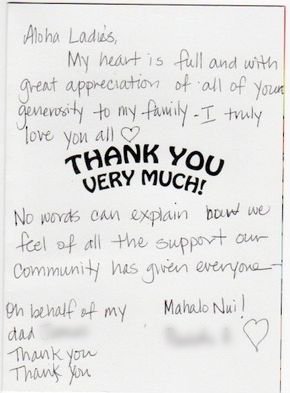 Aloha Ladies,
My heart is full and with
great appreciation of all of your
generosity to my family - I truly
love you all ♡
THANK YOU
VERY MUCH!
No words can explain how we
feel of all the support our
community has given everyone—
On behalf of my
dad
Thank you
Thank you
Mahalo Nui!
♡